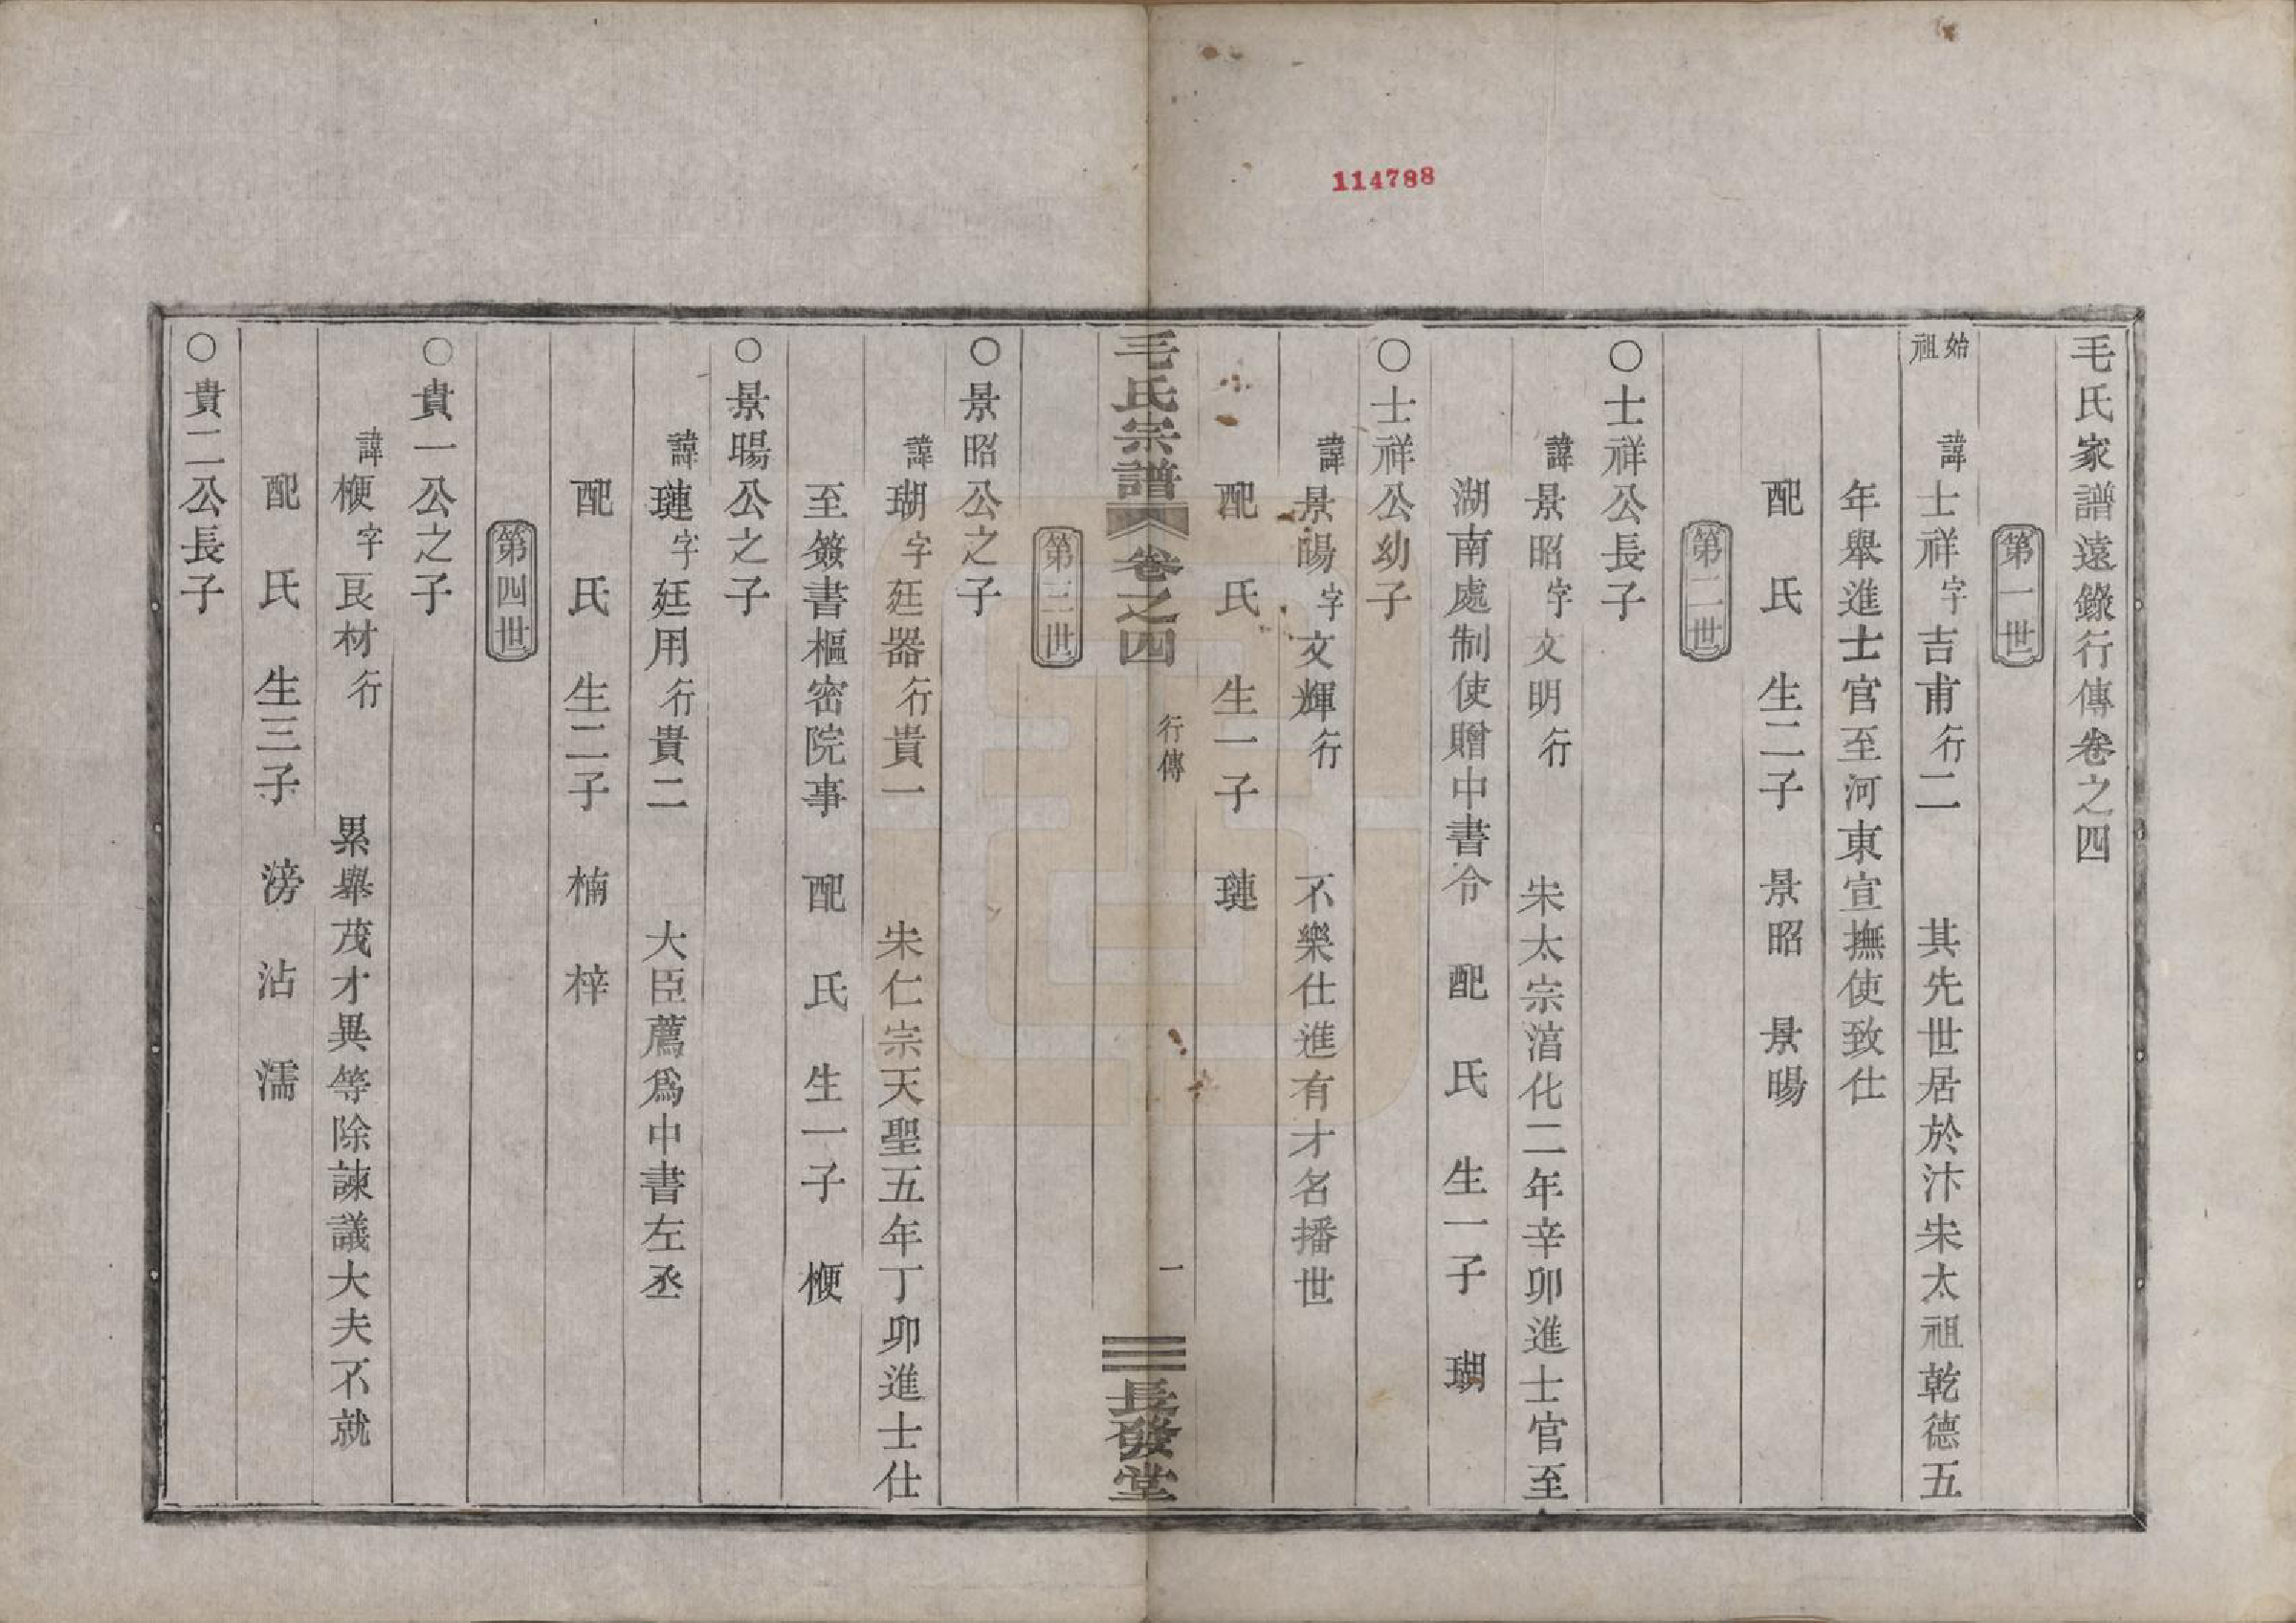 114788
毛氏家譜遠錄行傳卷之四
第一世
始祖 諱士祥字吉甫行二 其先世居於汴宋太祖乾德五
年舉進士官至河東宣撫使致仕
配 氏 生二子 景昭 景暘
第二世
○士祥公長子
諱景昭字文明行 宋太宗湻化二年辛卯進士官至
湖南處制使贈中書令 配 氏 生一子 瑚
○士祥公幼子
諱景暘字文輝行 不樂仕進有才名播世
配 氏 生一子 璉
毛氏宗譜 卷之四 行傳 一 長發堂
第三世
○景昭公之子
諱瑚字廷器行貴一 宋仁宗天聖五年丁卯進士仕
至簽書樞密院事 配 氏 生一子 楩
○景暘公之子
諱璉字廷用行貴二 大臣薦為中書左丞
配 氏 生二子 楠 梓
第四世
○貴一公之子
諱楩字良材行 累舉茂才異等除諫議大夫不就
配 氏 生三子 滂 沾 濡
○貴二公長子